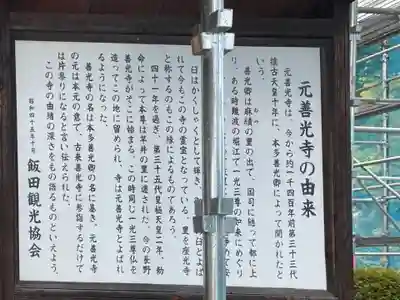 元善光寺の由来
元善光寺は、今から約一千四百年前第三十三代
推古天皇十年に、本多善光卿によって開かれたと
いう。
善光卿は麻績の里の出で、国司に随って都に上
おみ
り、ある時難波の堀江で一光三尊の
来にめぐり
臼はかくしゃくとして輝き、
臼とよば
れて今もこの寺の霊宝となっている。里を座光寺
と称するのもこの縁によるものであろう。
四十一年を過ぎ、第三十五代皇極天皇二年、勅
命によって本尊は芋井の里に遷された。今の長野
善光寺がそこに始まる。この時同じ一光三尊仏を
造ってこの地に留められ、寺は元善光寺とよばれ
るようになった。
善光寺の名は本多善光卿の名に基き、元善光寺
の元は本元の意で、古来善光寺に参詣するだけで
は片参りになると言い伝えられた。
この寺の由緒の深さをもの語るものといえよう。
昭和四十五年十月
飯田観光協会